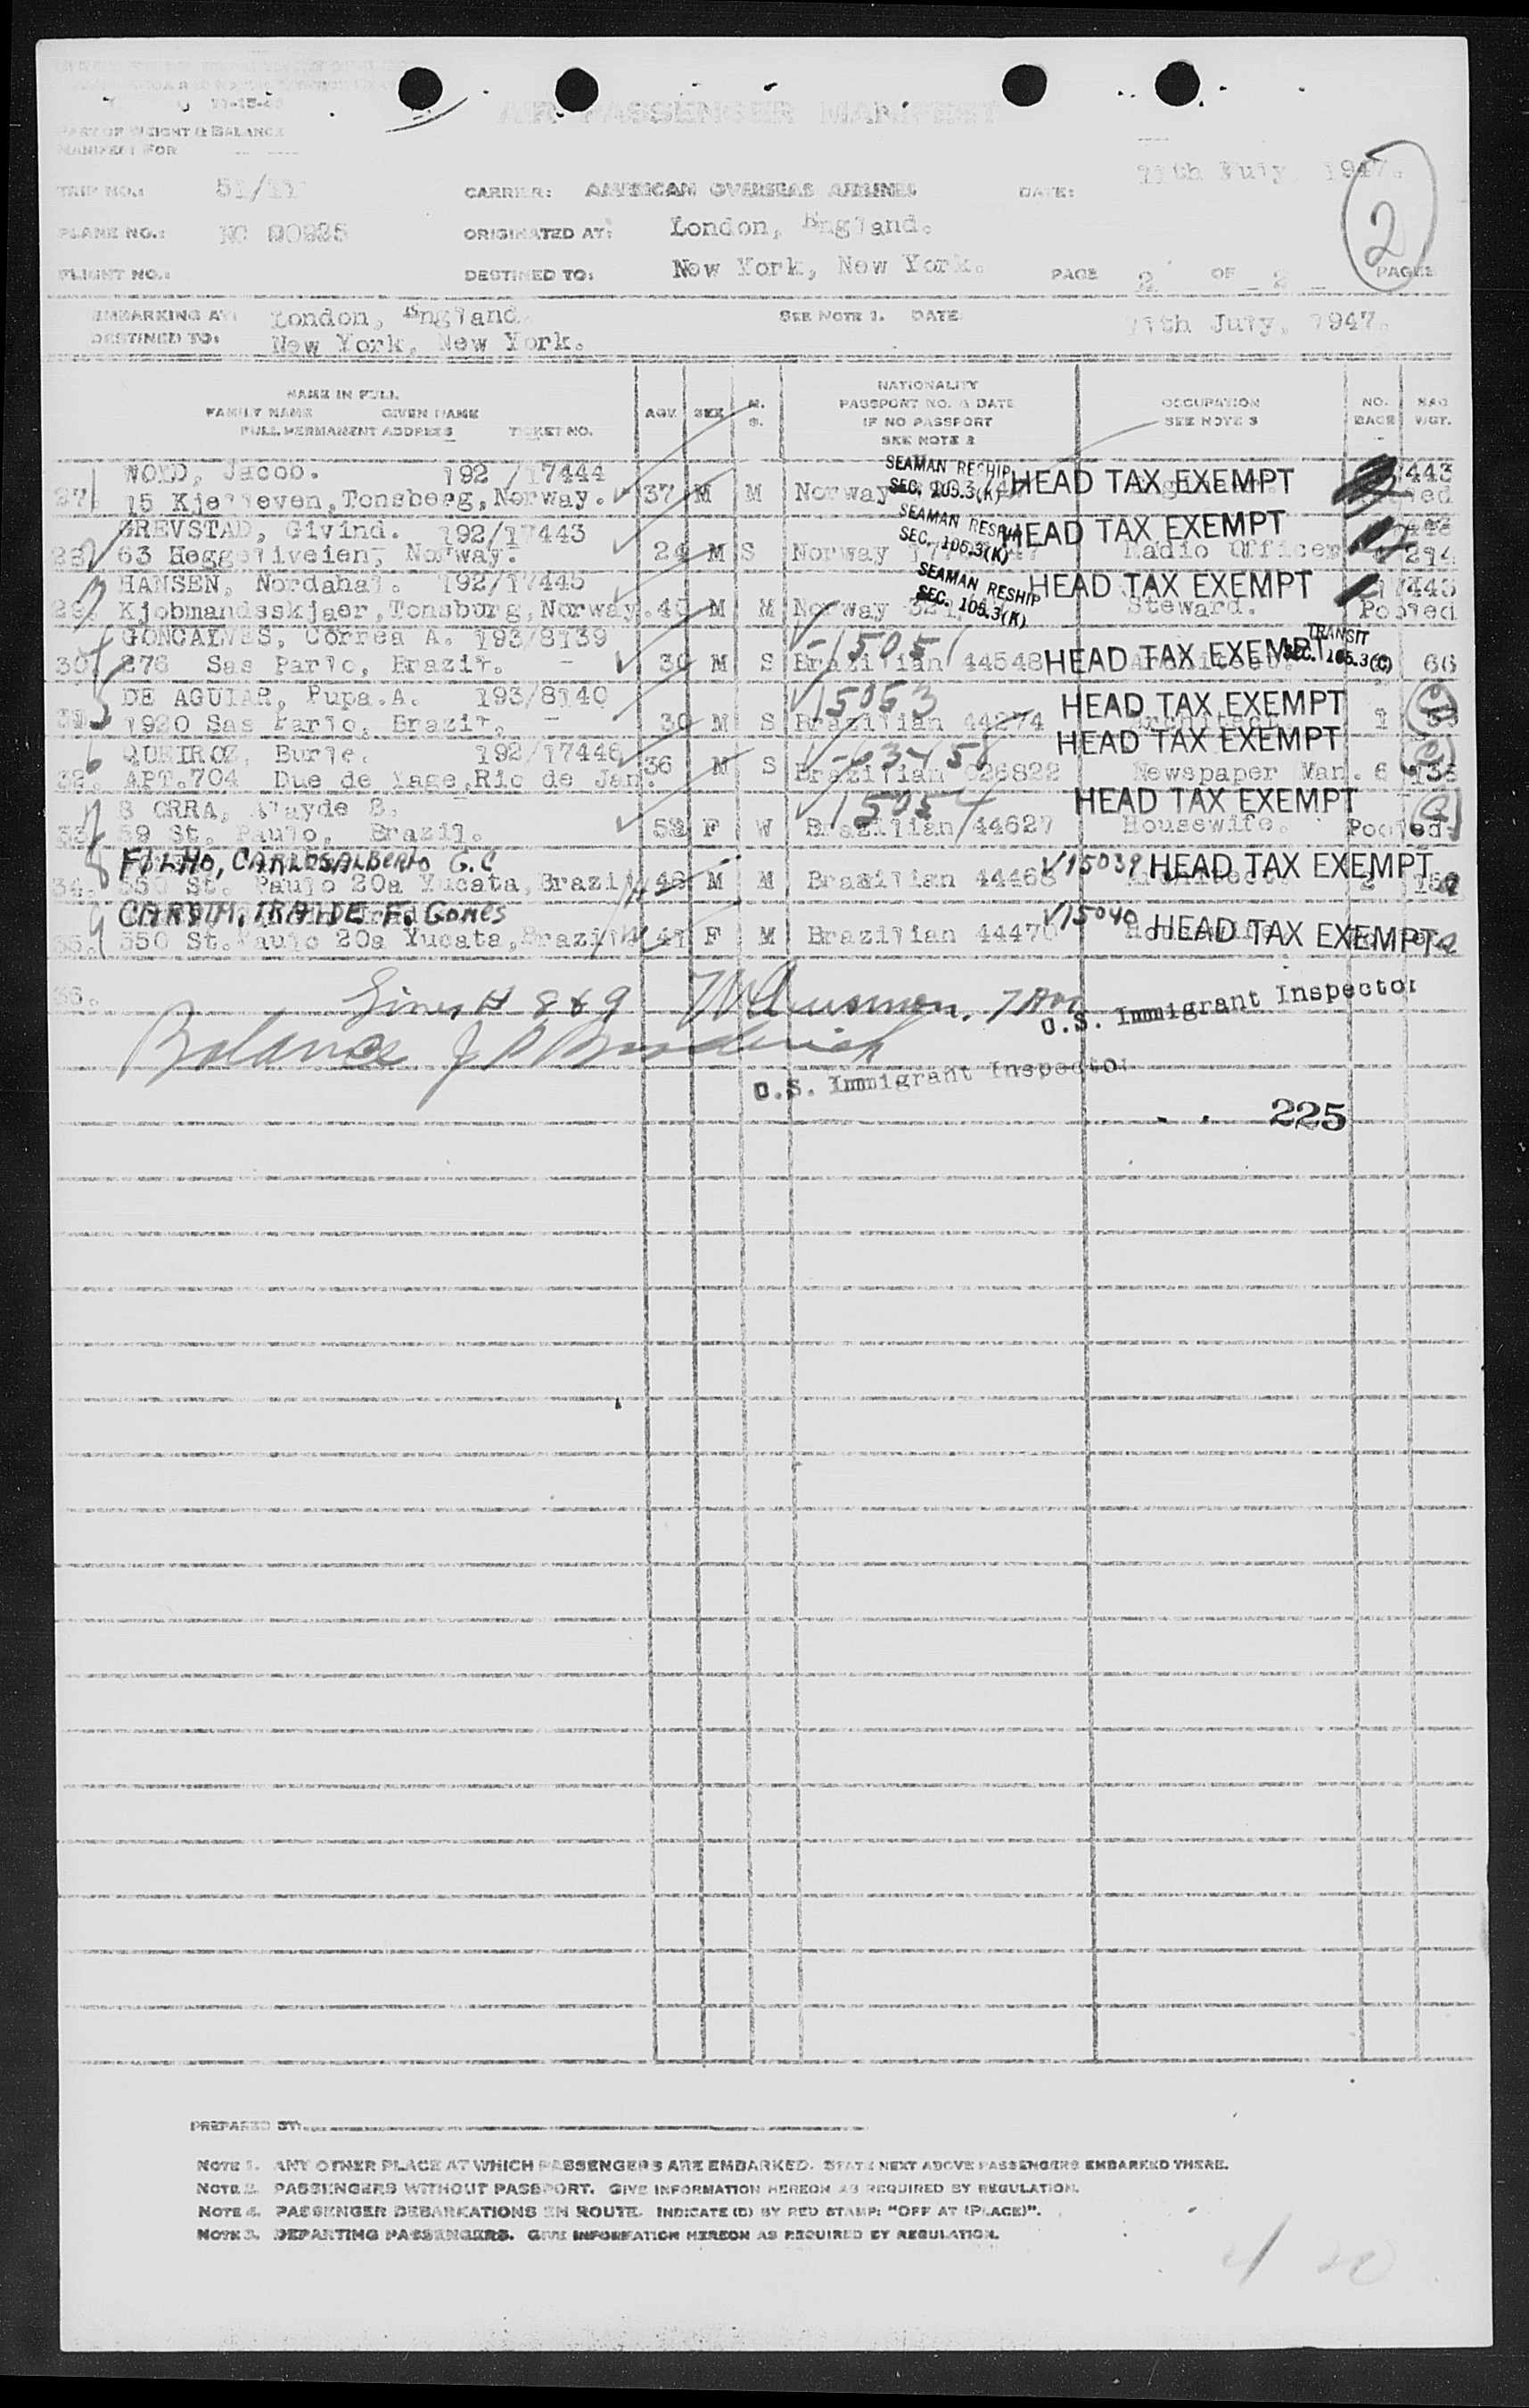 AIR PASSENGER MANIFEST
PART OF WEIGHT & BALANCE
MANIFEST FOR
TRIP NO.: 51/11 CARRIER: AMERICAN OVERSEAS AIRLINES DATE: 11th July 1947.
PLANE NO.: NC 90925 ORIGINATED AT: London, England.
FLIGHT NO.: DESTINED TO: New York, New York. PAGE 2 OF 2 PAGES
2
EMBARKING AT: London, England. SEE NOTE 1. DATE 11th July, 1947.
DESTINED TO: New York, New York.
NAME IN FULL
FAMILY NAME GIVEN NAME
FULL PERMANENT ADDRESS TICKET NO.
AGE SEX M. S.
NATIONALITY
PASSPORT NO. & DATE
IF NO PASSPORT
SEE NOTE 2
OCCUPATION
SEE NOTE 3
NO. BAGS
BAG WGT.
WOLD, Jacob. 192/17444 SEAMAN RESHIP
27. 15 Kjelleven, Tonsberg, Norway. 37 M M Norway SEC. 105.3(K) HEAD TAX EXEMPT
GREVSTAD, Givind. 192/17443 SEAMAN RESHIP HEAD TAX EXEMPT
28. 63 Norway. 24 M S Norway SEC. 105.3(K) Radio Officer 214
HANSEN, Nordahal. 192/17445 SEAMAN RESHIP HEAD TAX EXEMPT 17443
29. Kjobmandsskjaer, Tonsburg, Norway. 40 M M Norway SEC. 105.3(K) Steward. Pooled
GONCALVES, Correa A. 193/8139 15051 TRANSIT
30. 276 Sao Parlo, Brazil. - 30 M S Brazilian 44548 HEAD TAX EXEMPT SEC. 105.3(C) 66
DE AGUIAR, Pupa.A. 193/8140 15053 HEAD TAX EXEMPT
31. 1920 Sas Parlo, Brazil. - 30 M S Brazilian 44274 Architect. 1
QUEIROZ, Burle. 192/17446 63458 HEAD TAX EXEMPT
32. APT.704 Due de Xage, Rio de Jan. 36 M S Brazilian 026822 Newspaper Man. 6
S CRRA, Alayde S. 15054 HEAD TAX EXEMPT
33. 59 St. Paulo, Brazil. 52 F W Brazilian 44627 Housewife. Pooled.
FILHO, CARLOS ALBERTO G.C V15039 HEAD TAX EXEMPT
34. 550 St. Paulo 20a Yucata, Brazil 48 M M Brazilian 44468 Architect. 2
CARDIM, IRAIDE F. Gomes V15040 HEAD TAX EXEMPT
35. 550 St. Paulo 20a Yucata, Brazil 41 F M Brazilian 44470 Housewife
36. Lines # 8 & 9
U.S. Immigrant Inspector
Balance J P Broderick
U.S. Immigrant Inspector
225
PREPARED BY:
NOTE 1. ANY OTHER PLACE AT WHICH PASSENGERS ARE EMBARKED. STATE NEXT ABOVE PASSENGERS EMBARKED THERE.
NOTE 2. PASSENGERS WITHOUT PASSPORT. GIVE INFORMATION HEREON AS REQUIRED BY REGULATION.
NOTE 4. PASSENGER DEBARKATIONS EN ROUTE. INDICATE (D) BY RED STAMP: "OFF AT (PLACE)".
NOTE 3. DEPARTING PASSENGERS. GIVE INFORMATION HEREON AS REQUIRED BY REGULATION.